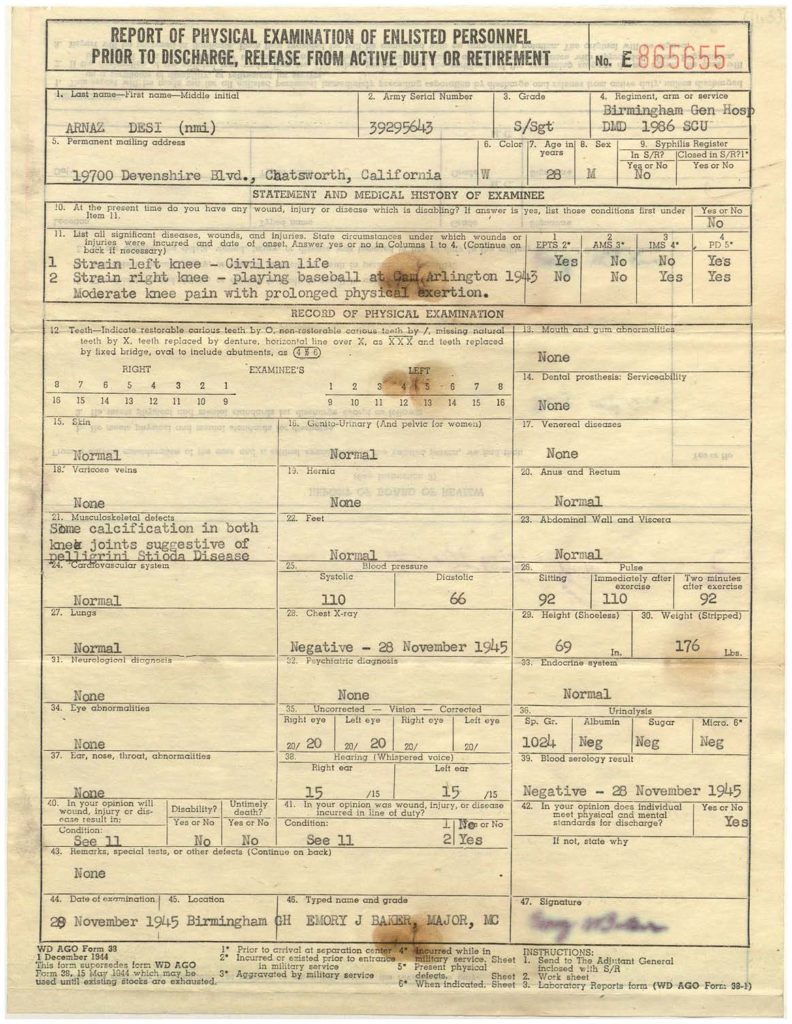 REPORT OF PHYSICAL EXAMINATION OF ENLISTED PERSONNEL
PRIOR TO DISCHARGE, RELEASE FROM ACTIVE DUTY OR RETIREMENT
No. E 865655
1. Last name—First name—Middle initial
ARNAZ DESI (nmi)
2. Army Serial Number
39295643
3. Grade
S/Sgt
4. Regiment, arm or service
Birmingham Gen Hosp
DMD 1986 SCU
5. Permanent mailing address
19700 Devenshire Blvd., Chatsworth, California
6. Color
W
7. Age in years
28
8. Sex
M
9. Syphilis Register
In S/R? Closed in S/R?1*
Yes or No Yes or No
No
STATEMENT AND MEDICAL HISTORY OF EXAMINEE
10. At the present time do you have any wound, injury or disease which is disabling? If answer is yes, list those conditions first under
Item 11.
Yes or No
No
11. List all significant diseases, wounds, and injuries. State circumstances under which wounds or
injuries were incurred and date of onset. Answer yes or no in Columns 1 to 4. (Continue on
back if necessary)
1 2 3 4
EPTS 2* AMS 3* IMS 4* PD 5*
1 Strain left knee - Civilian life Yes No No Yes
2 Strain right knee - playing baseball at Cam Arlington 1943 No No Yes Yes
Moderate knee pain with prolonged physical exertion.
RECORD OF PHYSICAL EXAMINATION
12 Teeth—Indicate restorable carious teeth by O, non-restorable carious teeth by /, missing natural
teeth by X, teeth replaced by denture, horizontal line over X, as XXX and teeth replaced
by fixed bridge, oval to include abutments, as
RIGHT EXAMINEE'S LEFT
8 7 6 5 4 3 2 1 1 2 3 4 5 6 7 8
16 15 14 13 12 11 10 9 9 10 11 12 13 14 15 16
13. Mouth and gum abnormalities
None
14. Dental prosthesis: Serviceability
None
15. Skin
Normal
16. Genito-Urinary (And pelvic for women)
Normal
17. Venereal diseases
None
18. Varicose veins
None
19. Hernia
None
20. Anus and Rectum
Normal
21. Musculoskeletal defects
Some calcification in both
knee joints suggestive of
pelligrini Stioda Disease
22. Feet
Normal
23. Abdominal Wall and Viscera
Normal
24. Cardiovascular system
Normal
25. Blood pressure
Systolic Diastolic
110 66
26. Pulse
Sitting Immediately after exercise Two minutes after exercise
92 110 92
27. Lungs
Normal
28. Chest X-ray
Negative - 28 November 1945
29. Height (Shoeless)
69 In.
30. Weight (Stripped)
176 Lbs.
31. Neurological diagnosis
None
32. Psychiatric diagnosis
None
33. Endocrine system
Normal
34. Eye abnormalities
None
35. Uncorrected — Vision — Corrected
Right eye Left eye Right eye Left eye
20/ 20 20/ 20 20/ 20/
36. Urinalysis
Sp. Gr. Albumin Sugar Micro. 6*
1024 Neg Neg Neg
37. Ear, nose, throat, abnormalities
None
38. Hearing (Whispered voice)
Right ear Left ear
15 /15 15 /15
39. Blood serology result
Negative - 28 November 1945
40. In your opinion will
wound, injury or dis-
ease result in:
Condition:
See 11
Disability?
Yes or No
No
Untimely death?
Yes or No
No
41. In your opinion was wound, injury, or disease
incurred in line of duty?
Condition: Yes or No
See 11
1 No
2 Yes
42. In your opinion does individual
meet physical and mental
standards for discharge?
Yes or No
Yes
If not, state why
43. Remarks, special tests, or other defects (Continue on back)
None
44. Date of examination
28 November 1945
45. Location
Birmingham GH
46. Typed name and grade
EMORY J BAKER, MAJOR, MC
47. Signature
WD AGO Form 38
1 December 1944
This form supersedes form WD AGO
Form 38, 15 May 1944 which may be
used until existing stocks are exhausted.
1* Prior to arrival at separation center
2* Incurred or existed prior to entrance
in military service
3* Aggravated by military service
4* Incurred while in
military service.
5* Present physical
defects.
6* When indicated.
INSTRUCTIONS:
Sheet 1. Send to The Adjutant General
inclosed with S/R
Sheet 2. Work sheet
Sheet 3. Laboratory Reports form (WD AGO Form 38-1)